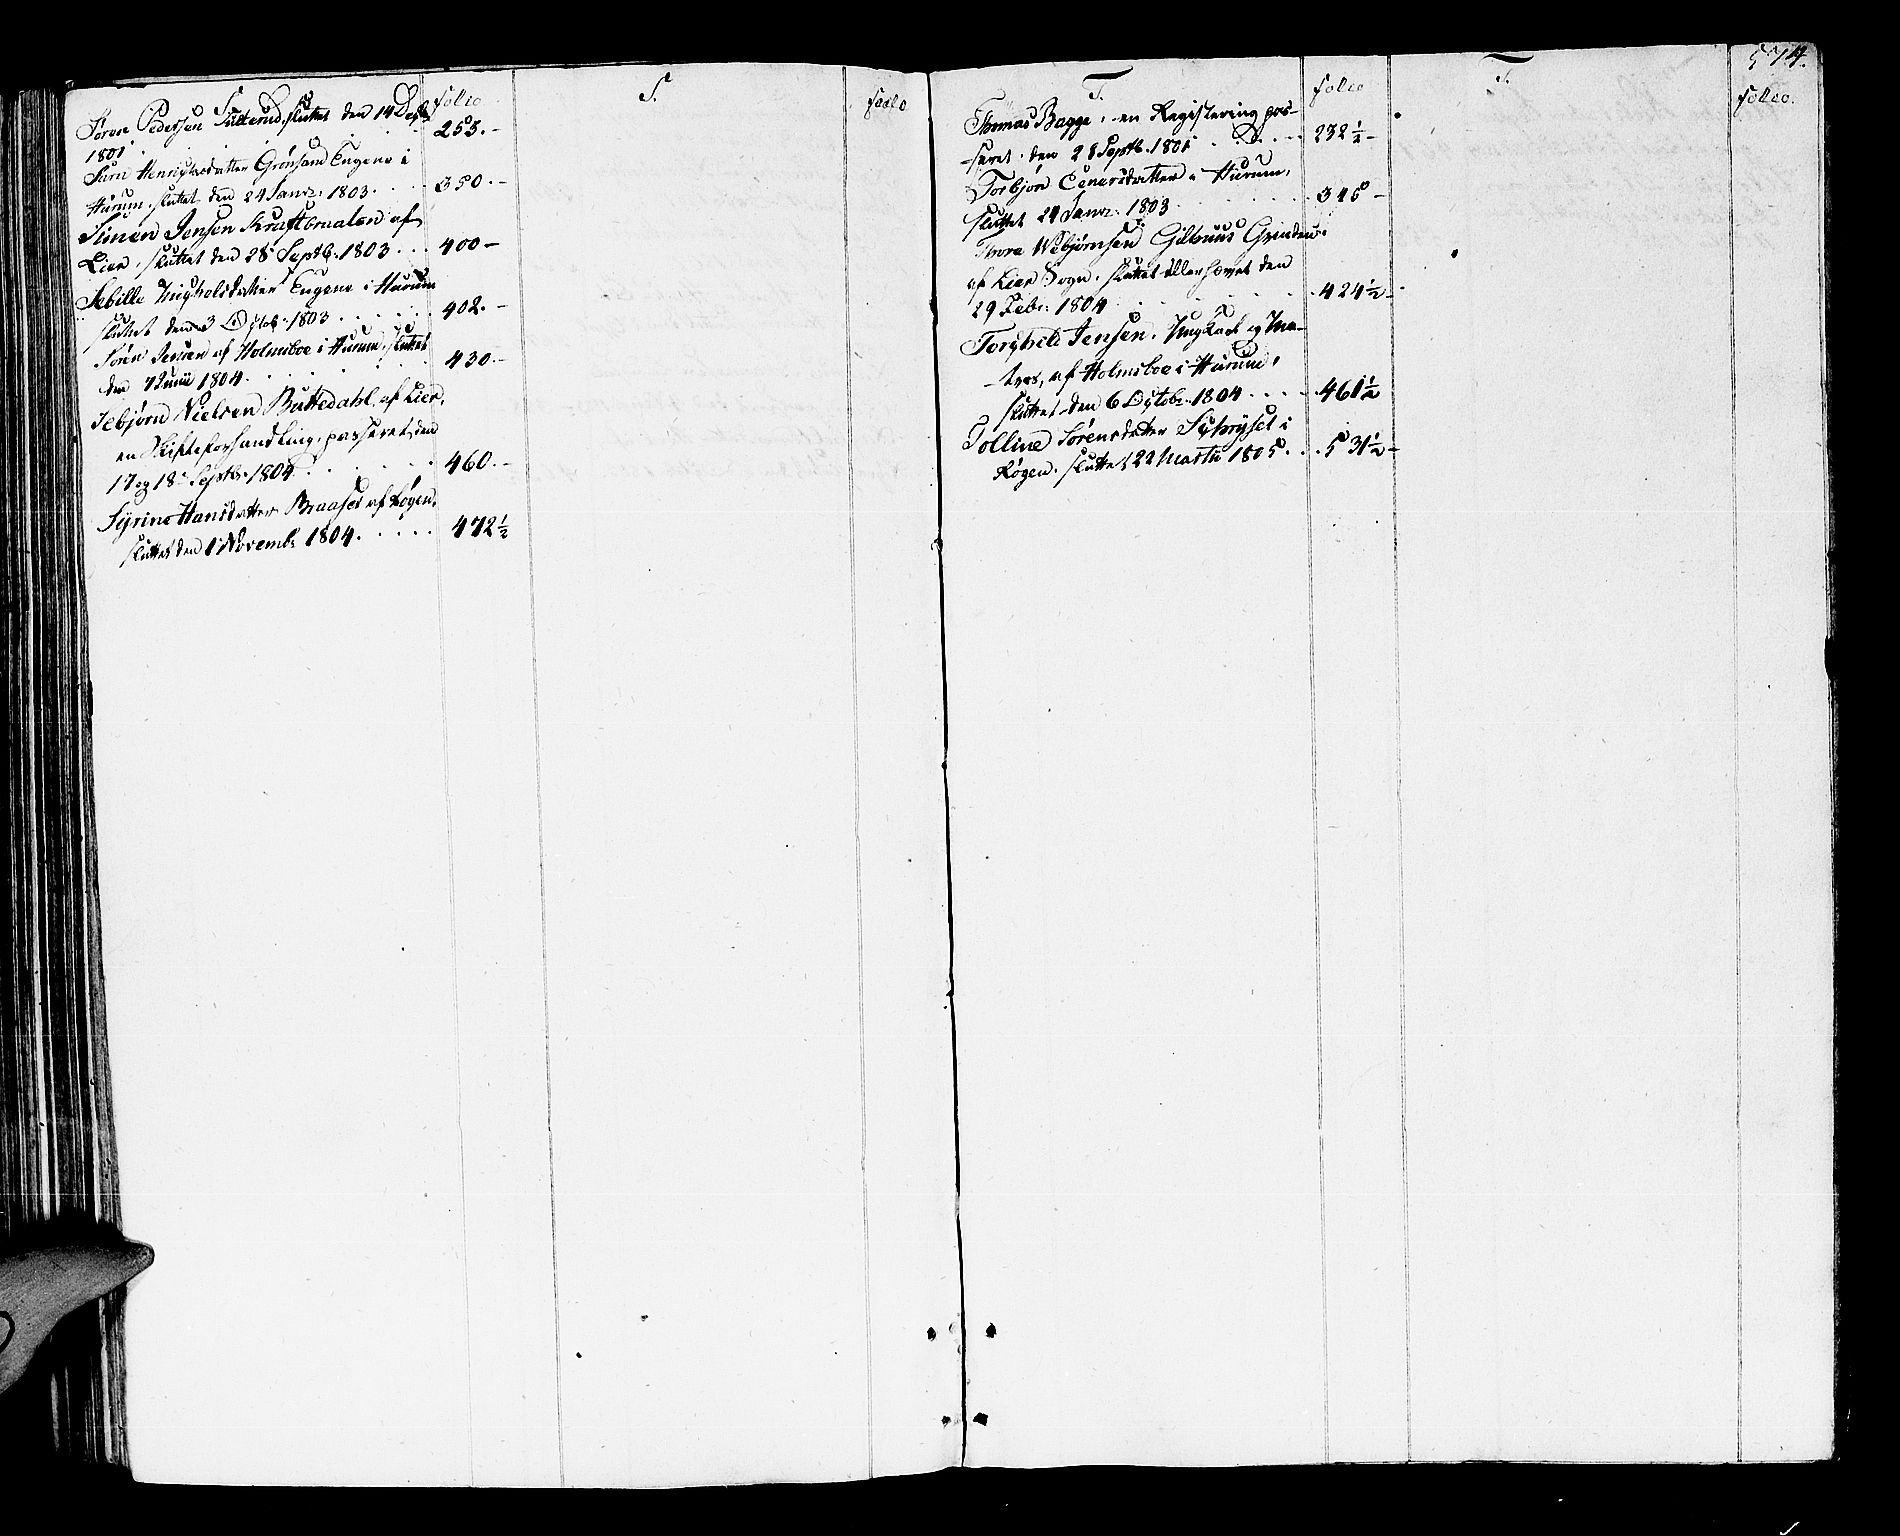 S.
folio
Søren Pedersen Sutterud, sluttet den 14 Decb.
1801 . . . 253. -
Sara Henrichsdatter Grønsand Eugene i
Hurum, sluttet den 24 Janr: 1803. . . . 350. -
Simen Jensen Kraftbraaten af
Lier, sluttet den 28 Septb. 1803 . . . 400 -
Sebille Nicholsdatter Eugene i Hurum
sluttet den 3 Octob. 1803 . . . . . . 402. -
Søren Jensen af Holmsboe i Hurum, sluttet
den 7 Junii 1804. . . . 430. -
Sebjørn Nielsen Buttedahl, af Lier,
en Skifteforhandling, passeret den
17 og 18 Septbr. 1804 . . . . 460. -
Syrine Hansdatter Braaset af Røgen,
sluttet den 1 Novemb: 1804. . . . . 472 1/2
S.
folio
T.
folio
Thomas Bagge, en Registering pas-
seret den 28 Septb. 1801 . . . 232 1/2 -
Torbjør Einersdatter i Hurum,
sluttet 24 Janr: 1803 . . . . 345 -
Thore Webjørnsen Gilhuus Grinden
af Lier Sogn, sluttet eller hævet den
29 Febr: 1804 . . . . 424 1/2 -
Torchild Jensen, Ungkarl og Ma-
tros, af Holmsboe i Hurum,
sluttet den 6 Octobr. 1804 . . . . 461 1/2
Tolline Sørensdatter i
Røgen, sluttet 22 Martii 1805. . . 531 1/2 -
T.
574.
folio.